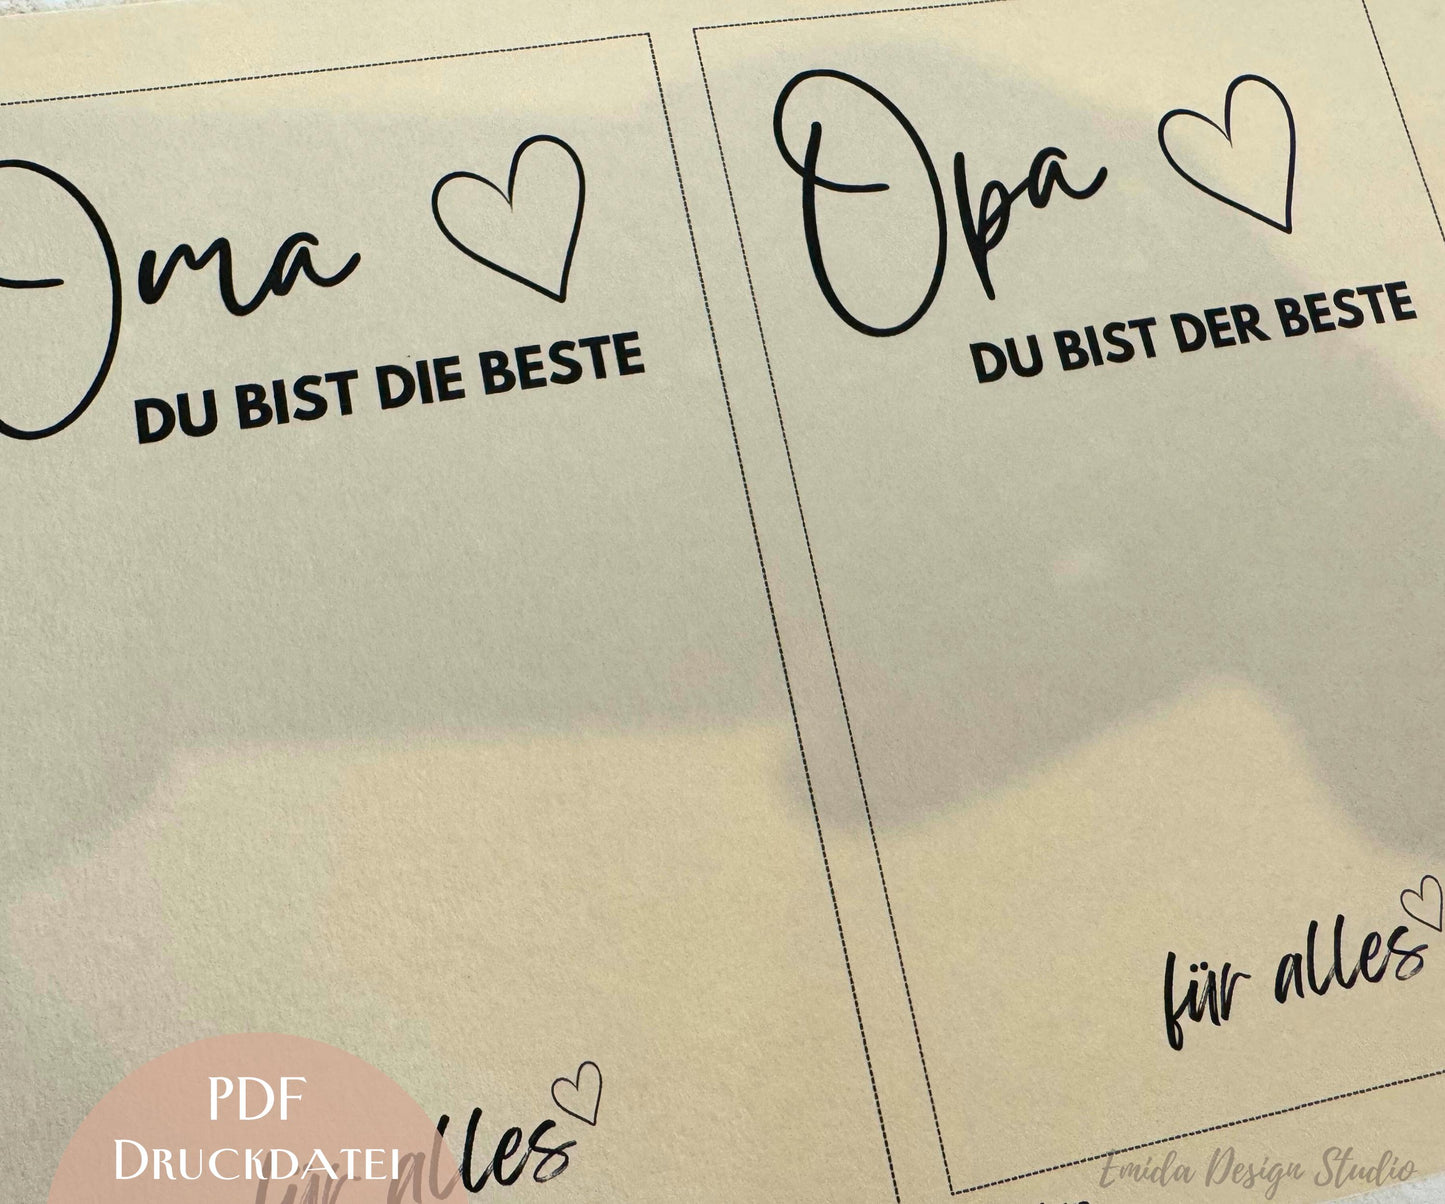 Oma
DU BIST DIE BESTE
für alles
Opa
DU BIST DER BESTE
für alles
PDF
DRUCKDATEI
Emida Design Studio